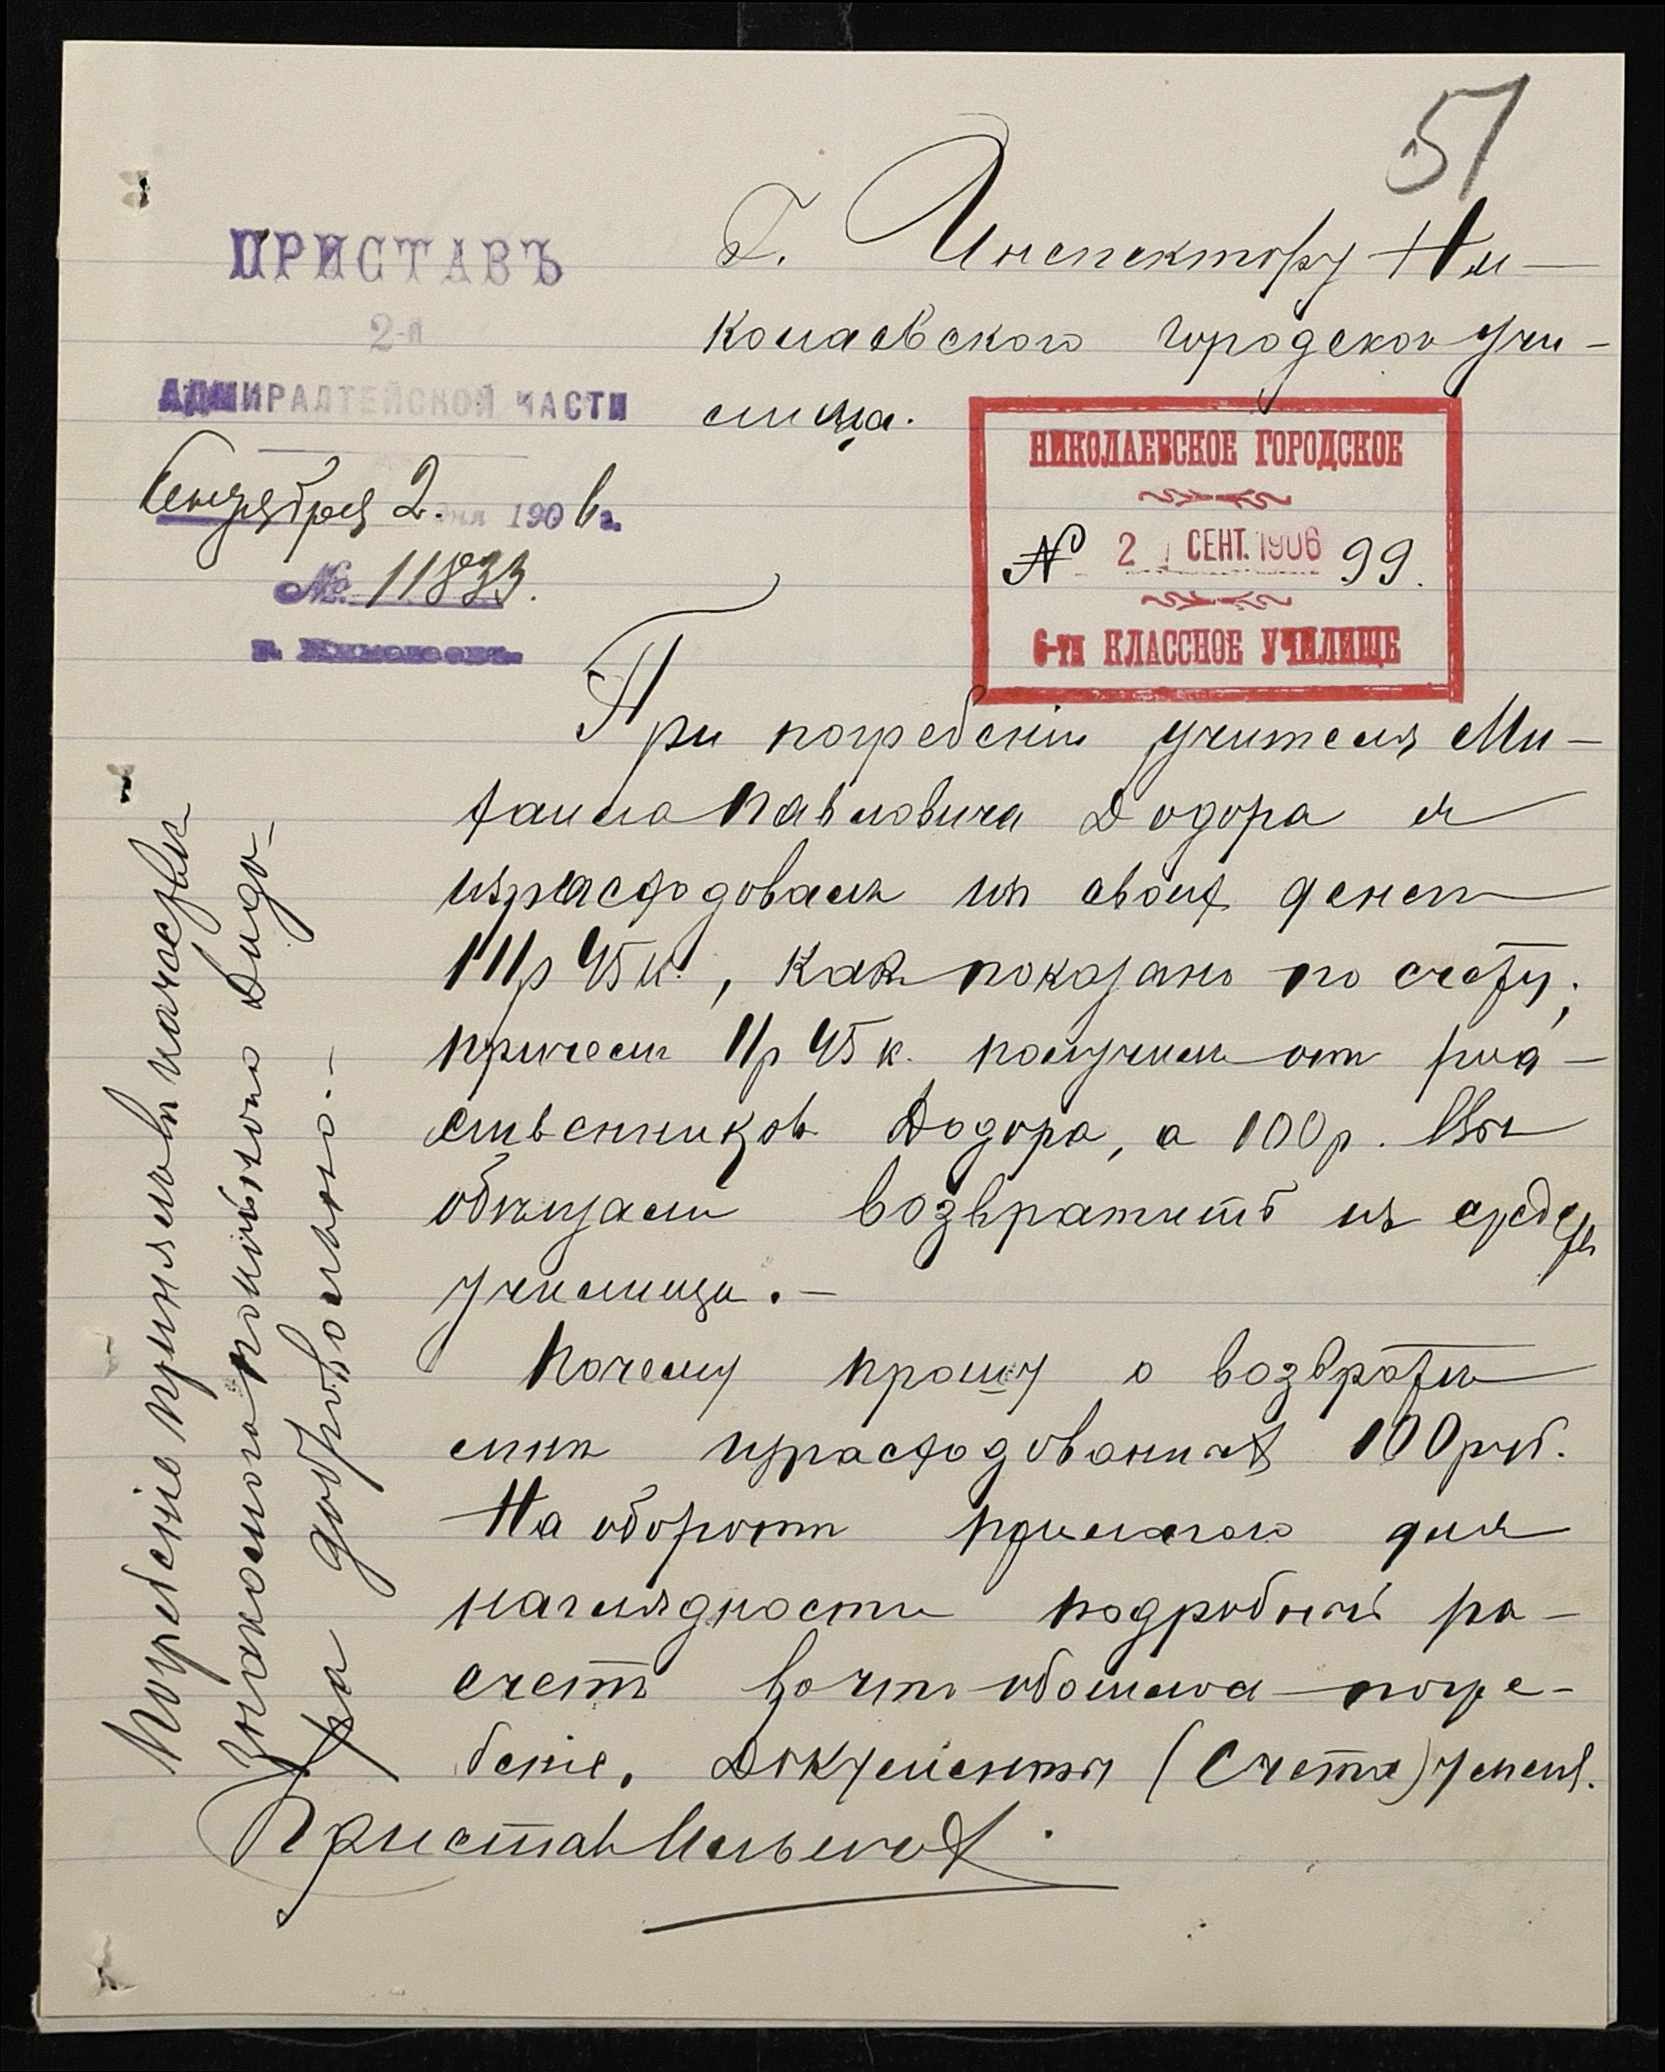 51
ПРИСТАВЪ
2-й
АДМИРАЛТЕЙСКОЙ ЧАСТИ
Сентября 2. дня 1906 г.
№ 11833.
г. Николаевъ.
Г. Инспектору Ни-
колаевского городского учи-
лища.
НИКОЛАЕВСКОЕ ГОРОДСКОЕ
№ 2 СЕНТ. 1906 99.
6-ти КЛАССНОЕ УЧИЛИЩЕ
При погребеніи учителя Ми-
хаила Павловича Додора я
израсходовалъ изъ своих денег
111р 45к., какъ показано по счету;
причемъ 11р 45к. получилъ от род-
ственников Додора, а 100р. Вы
обѣщали возвратить из средст
училища.-
Почему прошу о возвратѣ
мнѣ израсходованных 100руб.
На оборотѣ прилагаю для
наглядности подробный ра-
счетъ во что обошлось погре-
беніе. Документы (Счета) у меня.
Приставъ
Погребеніе принялъ на себя
знакомаго покойнаго Додо-
ра добровольно.-